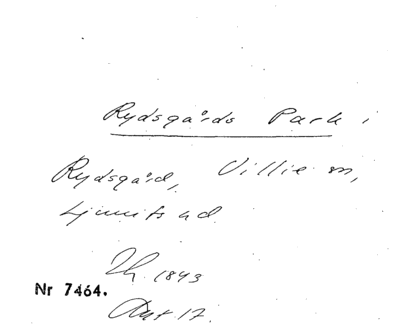 Rydsgårds Park i
Rydsgård, Villie sn,
Ljunits hd.
Th. 1843
Nr 7464.
Ant 17.